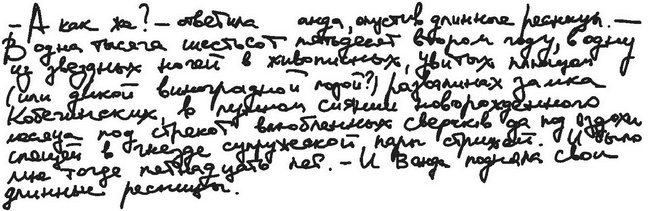 – А как же? – ответила анда, опустив длинные ресницы. –
В одна тысяча шестьсот пятьдесят втором году, в одну
из звездных ночей в живописных, увитых плющом
(или дикой виноградной лозой?) развалинах замка
Кобегинских, в лунном сиянии новорожденного
месяца под стрекот влюбленных сверчков да под вздохи
спящей в гнезде супружеской пары стрижей. И было
мне тогда пятнадцать лет. – И Ванда подняла свои
длинные ресницы.